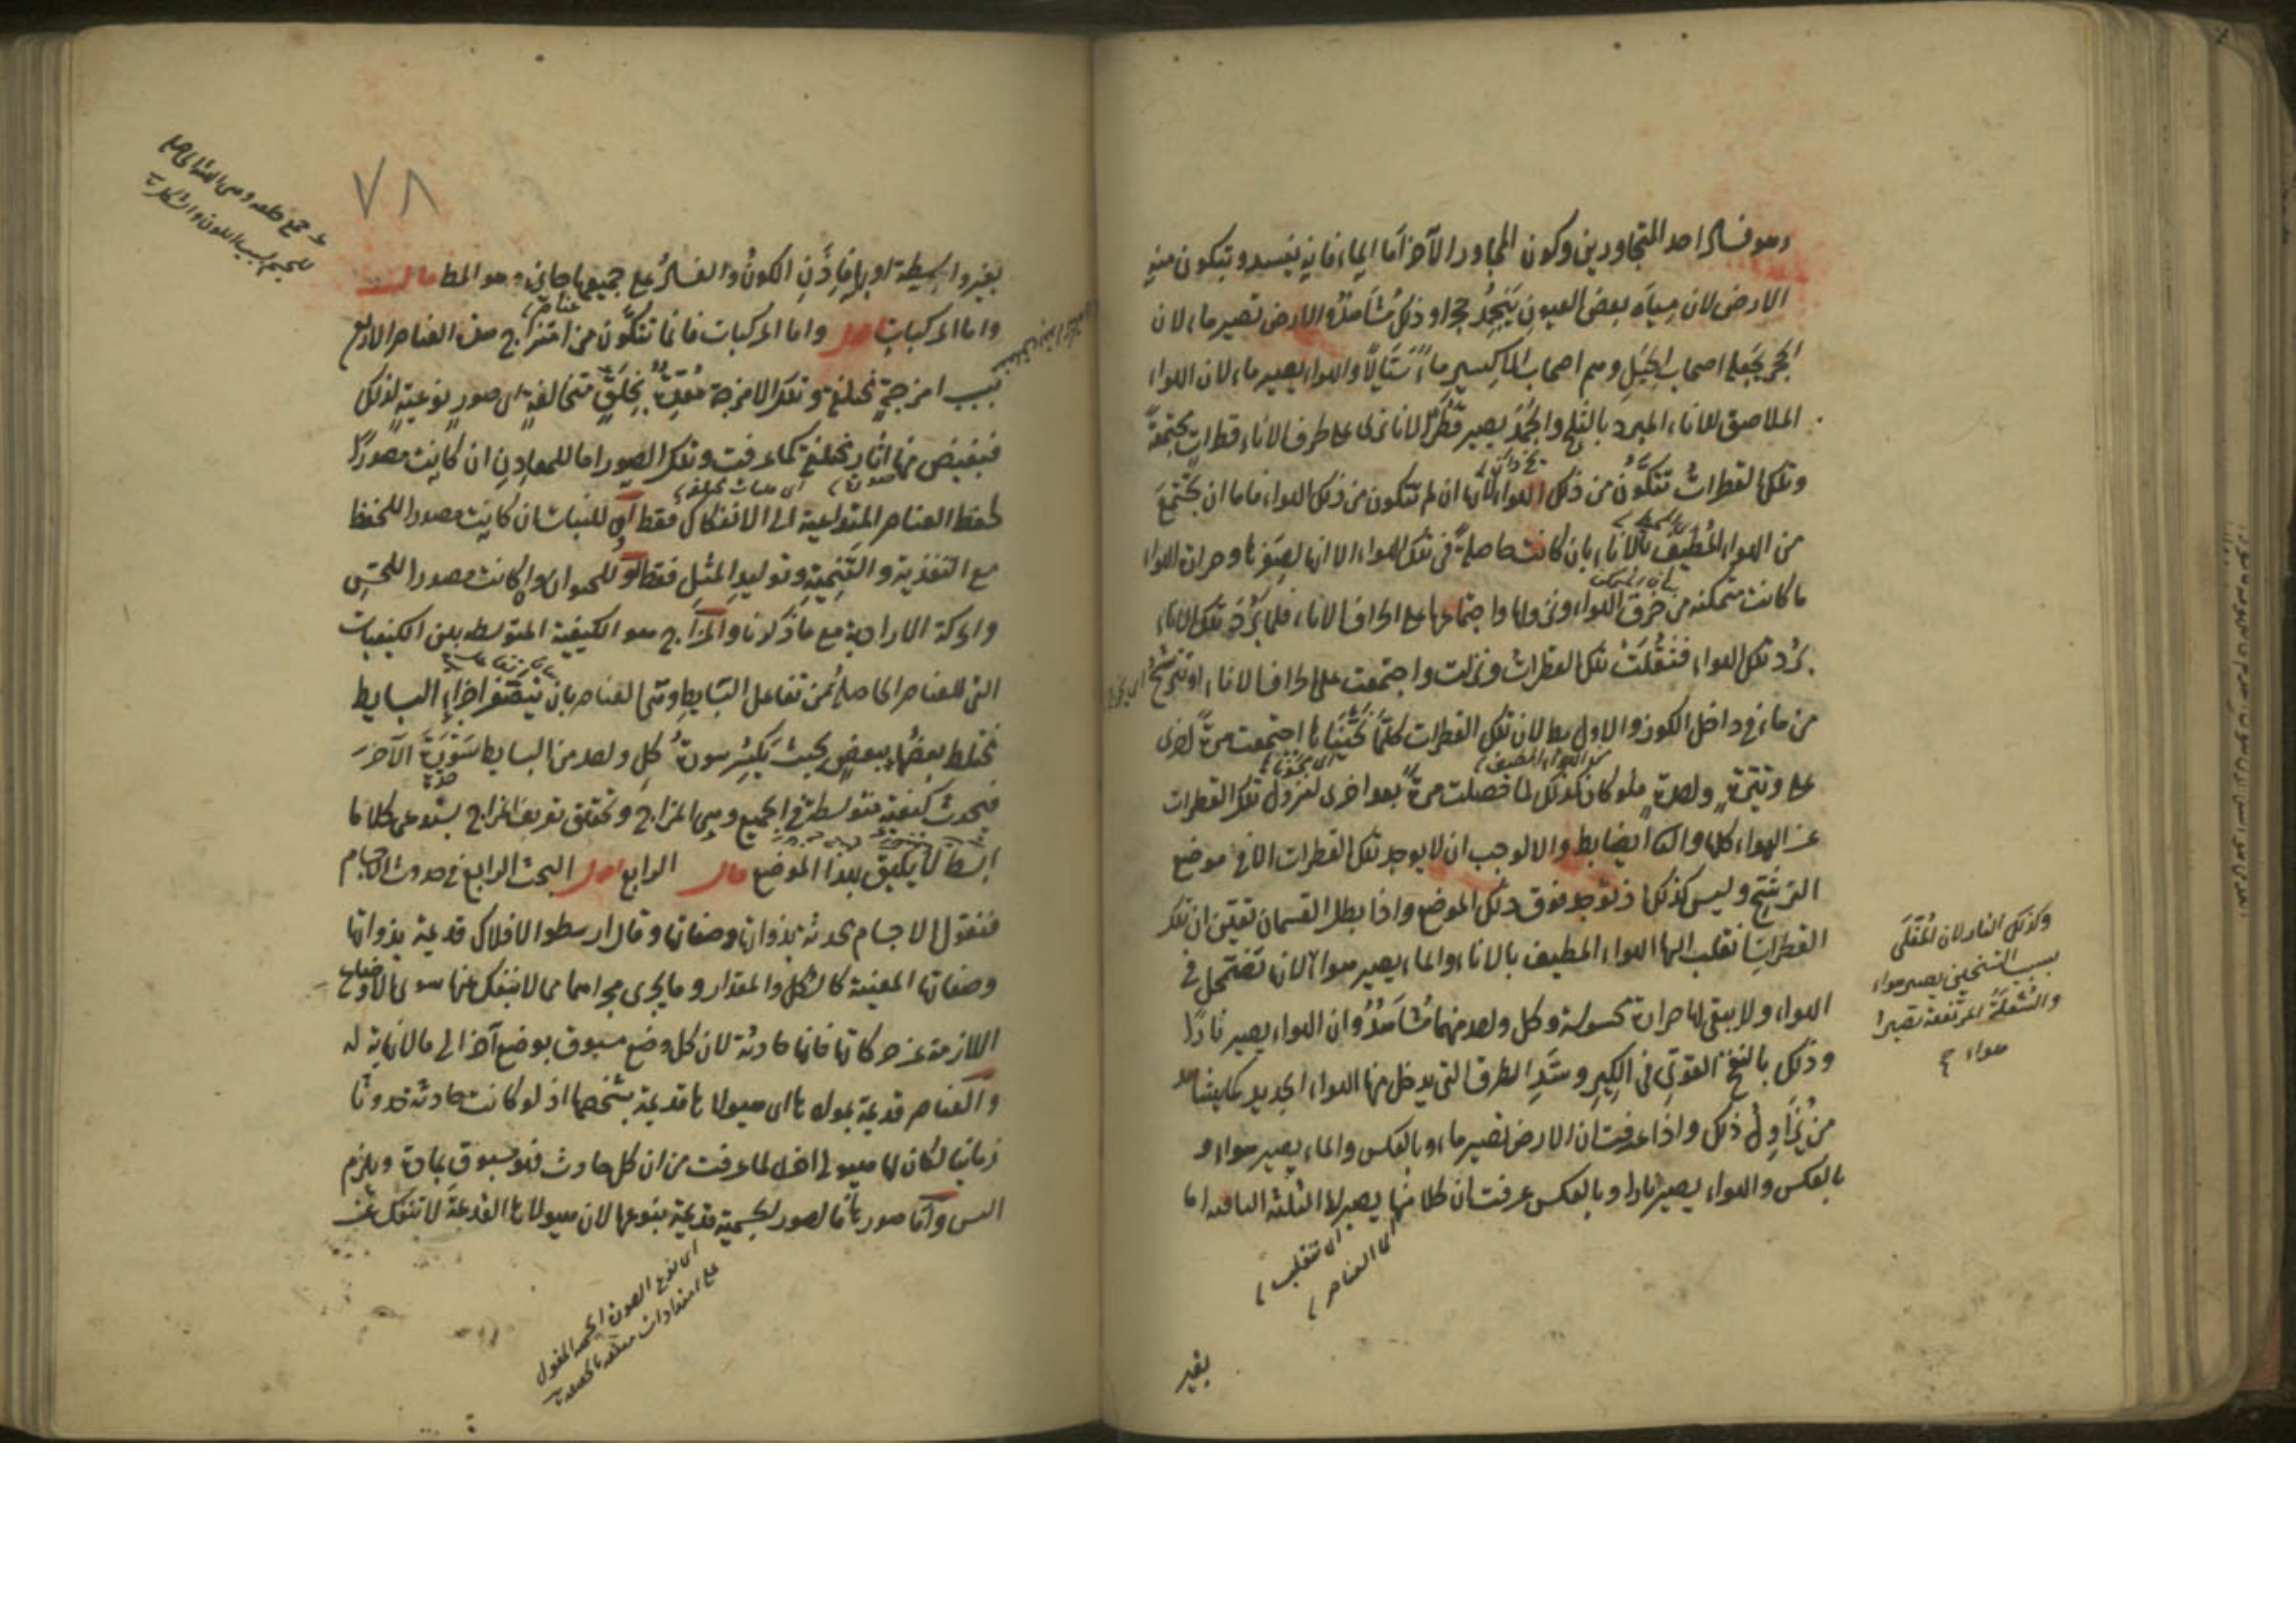 وهو فساد احد المتجاورين وكون المجاور الآخر اما الماء فانه يفسد ويتكون منه
الارض لان مياه بعض العيون ينجمد حجرا وذلك مشاهد والارض تصير ماء لان
الحجر يجعله اصحاب الحيل وهم اصحاب الاكسير ماء سيالا والهواء يصير ماء لان الهواء
الملاصق للاناء المبرد بالثلج والجمد يصير قطرا لانا نرى على طرف الاناء قطرات مجتمعة
وتلك القطرات تتكون من ذلك الهواء لانها ان لم تتكون من ذلك الهواء فاما ان تجتمع
من الهواء المطيف بالاناء بان كانت حاصلة في تلك الهواء الا انها لصغرها وحرارة الهواء
ما كانت متمكنة من خرق الهواء ونزولها واجتماعها على اطراف الاناء فلما برد تلك الاناء
برد تلك الهواء فثقلت تلك القطرات ونزلت واجتمعت على اطراف الاناء او تترشح
من ماء في داخل الكوز والاول بط لان تلك القطرات كلما نحيناها اجتمعت مرة اخرى
على وتيرة واحدة فلو كان كذلك لما حصلت مرة بعد اخرى لنزول تلك القطرات
عن الهواء كلها والثا ايضا بط والا لوجب ان لا يوجد تلك القطرات الا في موضع
الترشح وليس كذلك اذ توجد فوق ذلك الموضع واذا بطل القسمان تعين ان تلك
القطرات انقلب اليها الهواء المطيف بالاناء والماء يصير هواء لانها تضمحل في
الهواء ولا يبقى لها حرارة محسوسة وكل واحد منهما مشاهد وان الهواء يصير نارا
وذلك بالنفخ القوي في الكير وسد الطرق التي يدخل منها الهواء الجديد كما يشاهد
من يزاول ذلك واذا عرفت ان الارض تصير ماء وبالعكس والماء يصير هواء و
بالعكس والهواء يصير نارا وبالعكس عرفت ان كلا منها يصير الى الثلثة الباقية اما
اي تنقلب
اي العناصر
بغير
وكذلك النار لان المقلى
بسبب التسخين يصير هواء
والشعلة المرتفعة تصير
هواء
٧٨
بغير واسطة او بها فاذن الكون والفساد على جميعها جايز وهو المط قال
واما المركبات اقول واما المركبات فانها تتكون من امتزاج هذه العناصر الاربع
بسبب امزجة مختلفة وتلك الامزجة معدة بخلق متخالفة اي صور نوعية لذلك
فيفيض منها اثار مختلفة كما عرفت وتلك الصور اما للمعادن ان كانت مصدرا
لحفظ العناصر المتداعية الى الانفكاك فقط او للنبات ان كانت مصدرا للحفظ
مع التغذية والتنمية وتوليد المثل فقط او للحيوان ان كانت مصدرا للحس
والحركة الارادية مع ما ذكرنا والمزاج هو الكيفية المتوسطة بين الكيفيات
التي للعناصر الحاصلة من تفاعل البسايط وهي العناصر بان يتصغر اجزاء البسايط
تختلط بعضها ببعض بحيث يكسر سورة كل واحد من البسايط سورة الآخر
فيحدث كيفية متوسطة في الجميع وهي المزاج وتحقيق تعريف المزاج يستدعي كلاما
ابسط لا يليق بهذا الموضع قال الرابع اقول البحث الرابع في حدوث الاجسام
فنقول الاجسام محدثة بذواتها وصفاتها وقال ارسطو الافلاك قديمة بذواتها
وصفاتها المعينة كالشكل والمقدار وما يجري مجراهما مما لا ينفك عنها سوى الاوضاع
اللازمة عن حركاتها فانها حادثة لان كل وضع مسبوق بوضع آخر الى ما لا نهاية له
والعناصر قديمة بموادها اي هيولاها قديمة بشخصها اذ لو كانت حادثة حدوثا
زمانيا لكان لها هيولى اخرى لما عرفت من ان كل حادث فهو مسبوق بمادة ويلزم
التس واما صورها فالصور الجسمية قديمة بنوعها لان هيولاها القديمة لا تنفك عن
اي نوع الصورة الجسمية المقول